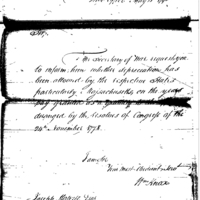 Sir,
The Secretary of War requests you
to inform him whether depreciation has
been allowed by the respective States
particularly Massachusetts on the years
pay granted as a gratuity to the
deranged by the resolves of Congress of the
24th November 1778.
I am Sir
Your most Obedient Servt
Wm Knox
Joseph Howell Esqr